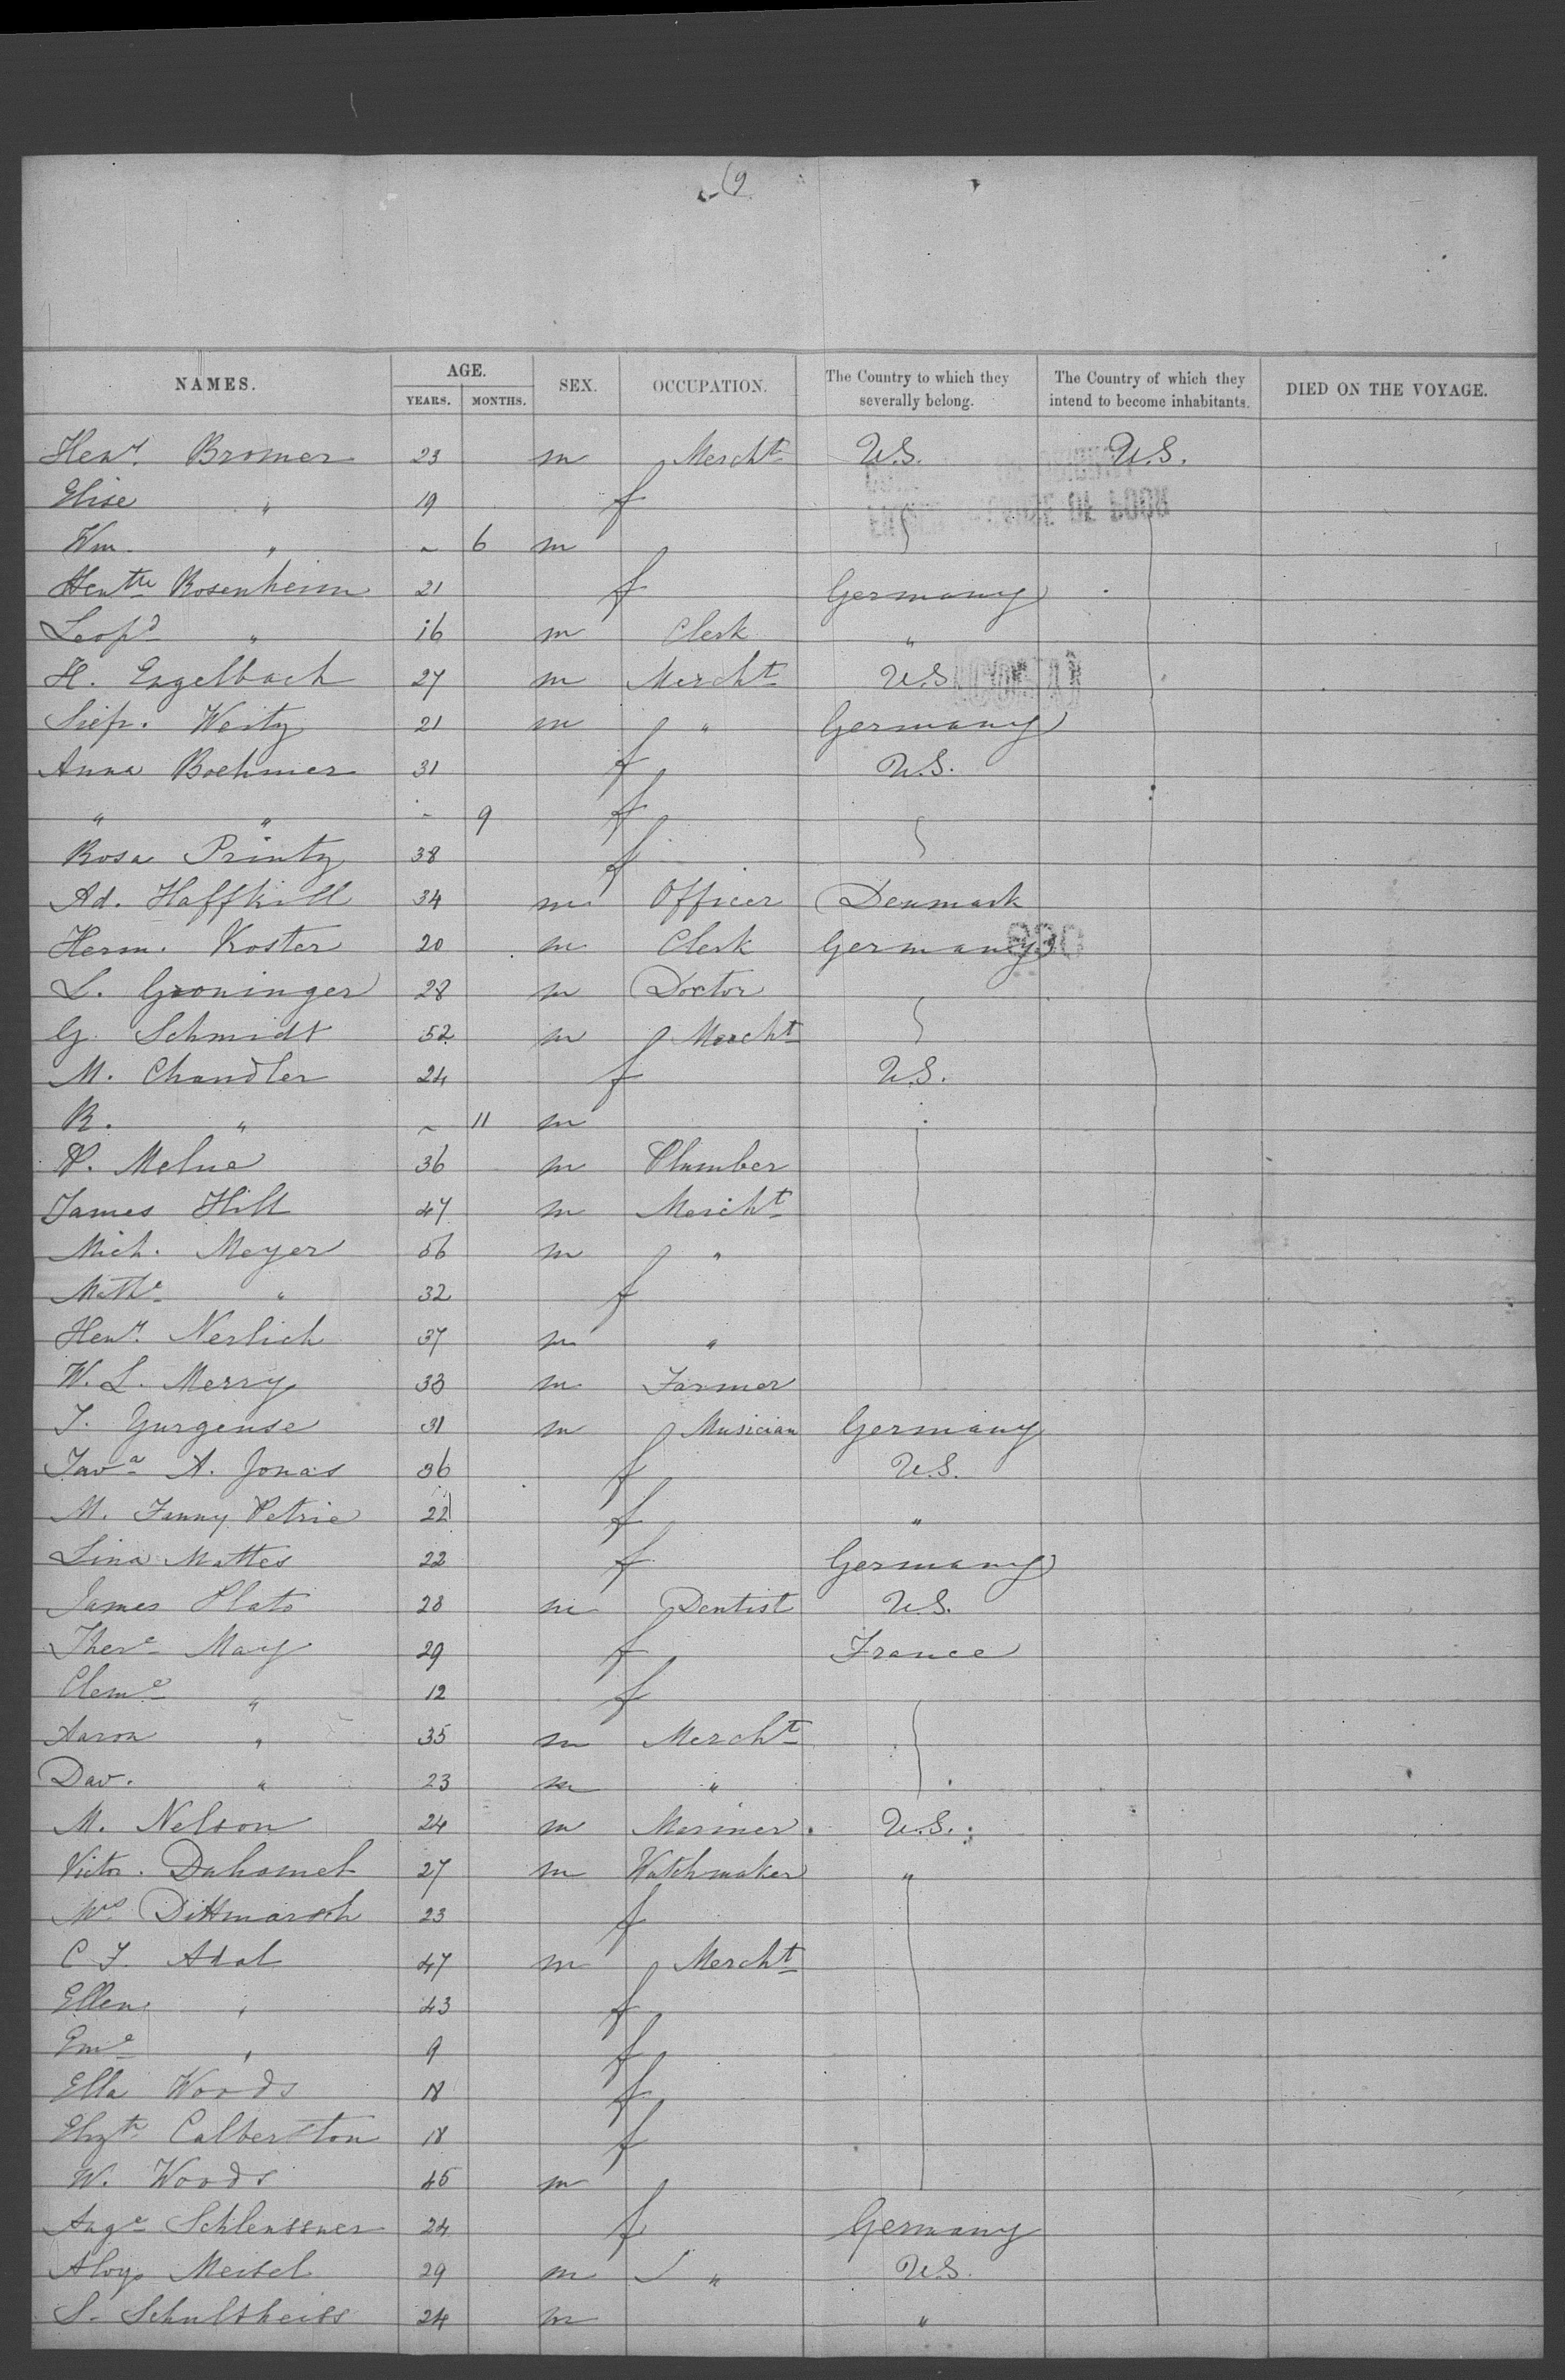 NAMES. AGE. YEARS. MONTHS. SEX. OCCUPATION. The Country to which they severally belong. The Country of which they intend to become inhabitants. DIED ON THE VOYAGE.
Henry. Bromer 23 m Mercht U.S. U.S.
Elise " 19 f
Wm. " ~ 6 m
Hentte Rosenheim 21 f Germany
Leopd " 16 m Clerk "
H. Engelbach 27 m Mercht U.S.
Siefr. Weitz 21 m " Germany
Anna Boehmer 31 f U.S.
" " - 9 f
Rosa Printz 38 f
Ad. Haffkill 34 m Officer Denmark
Herm. Koster 20 m Clerk Germany
L. Groninger 28 m Doctor
G. Schmidt 52 m Mercht
M. Chandler 24 f U.S.
R. " ~ 11 m
P. Melne 36 m Plumber
James Hill 47 m Mercht
Mich. Meyer 56 m "
Mathe " 32 f
Henry. Nerlich 37 m "
W. L. Merry 33 m Farmer
J. Yurgense 31 m Musician Germany
A. Jonas 36 f U.S.
M. Fanny Petrie 22 f "
Lina Mattes 22 f Germany
James Plato 28 m Dentist U.S.
There May 29 f France
Cleme " 12 f
Aaron " 35 m Mercht
Dav. " 23 m "
M. Nelson 24 m Mariner. U.S.
Victor. Duhamel 27 m Watchmaker "
Mrs Dittmarsch 23 f
C F. Adal 47 m Mercht
Ellen " 43 f
Eme " 9 f
Ella Woods 18 f
Elizth Calberston 18 f
W. Woods 45 m
Auge Schleussner 24 f Germany
Aloys Meisel 29 m " U.S.
S. Schultheiss 24 m "